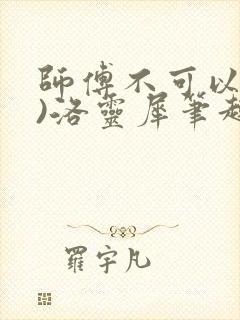 師傅不可以
)洛靈犀筆趣
羅宇凡